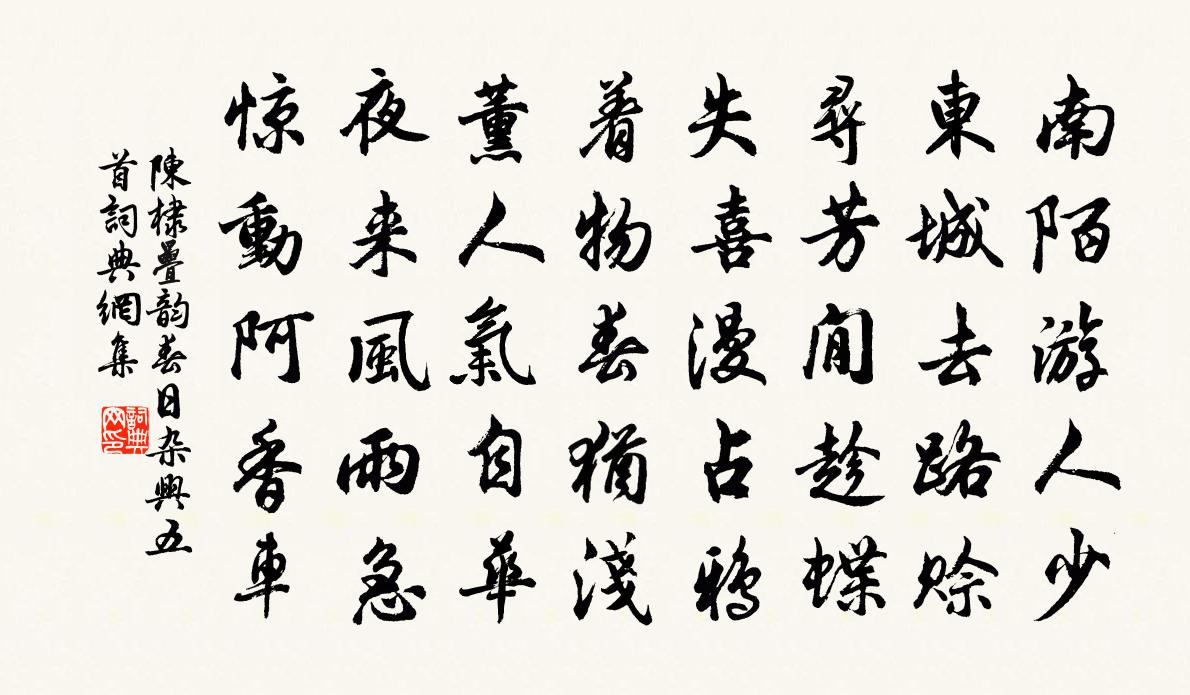 南陌游人少
東城去路賒
尋芳閒趁蝶
失喜漫占鴉
着物春猶淺
薰人氣自華
夜来風雨急
惊動阿香車
陳棣疊韵春日杂興五
首詞典網集
詞典网印